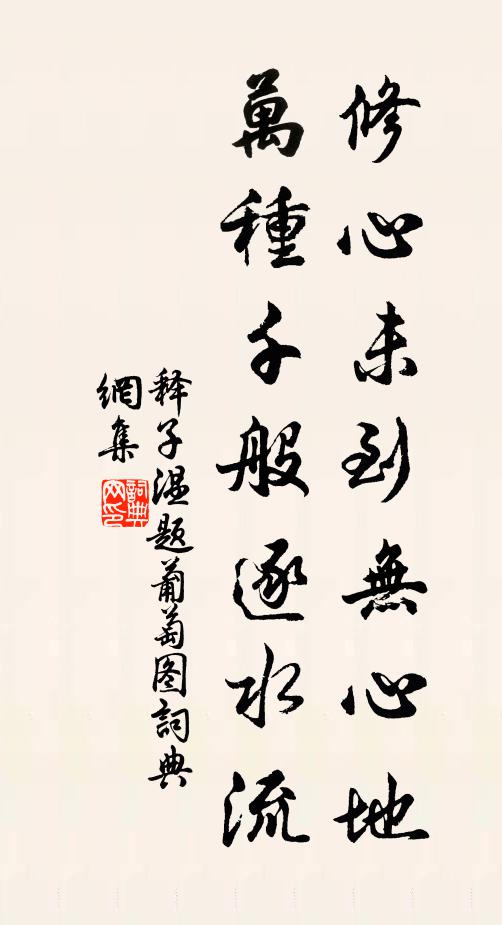 修心未到無心地
萬種千般逐水流
释子温题葡萄图詞典
網集
詞典
网印